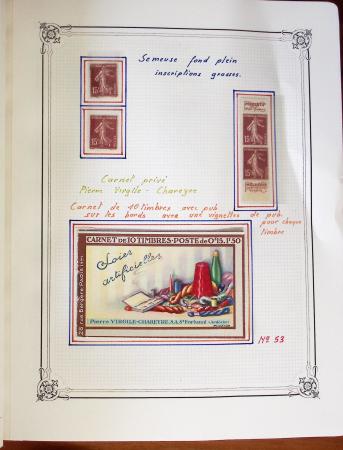 Semeuse fond plein
inscriptions grasses.
15
15
15
15
Carnet privé
Pierre Virgile - Chareyre
Carnet de 10 timbres avec pub
sur les bords avec une vignettes de pub.
pour chaque
timbre
CARNET DE 10 TIMBRES-POSTE DE 0F15. 1F50
Soies
artificielles
28 rue Bergère Paris
Pierre VIRGILE-CHAREYRE.S.A. St Fortunat (Ardèche)
No 53